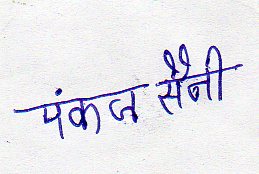 पंकज सैनी